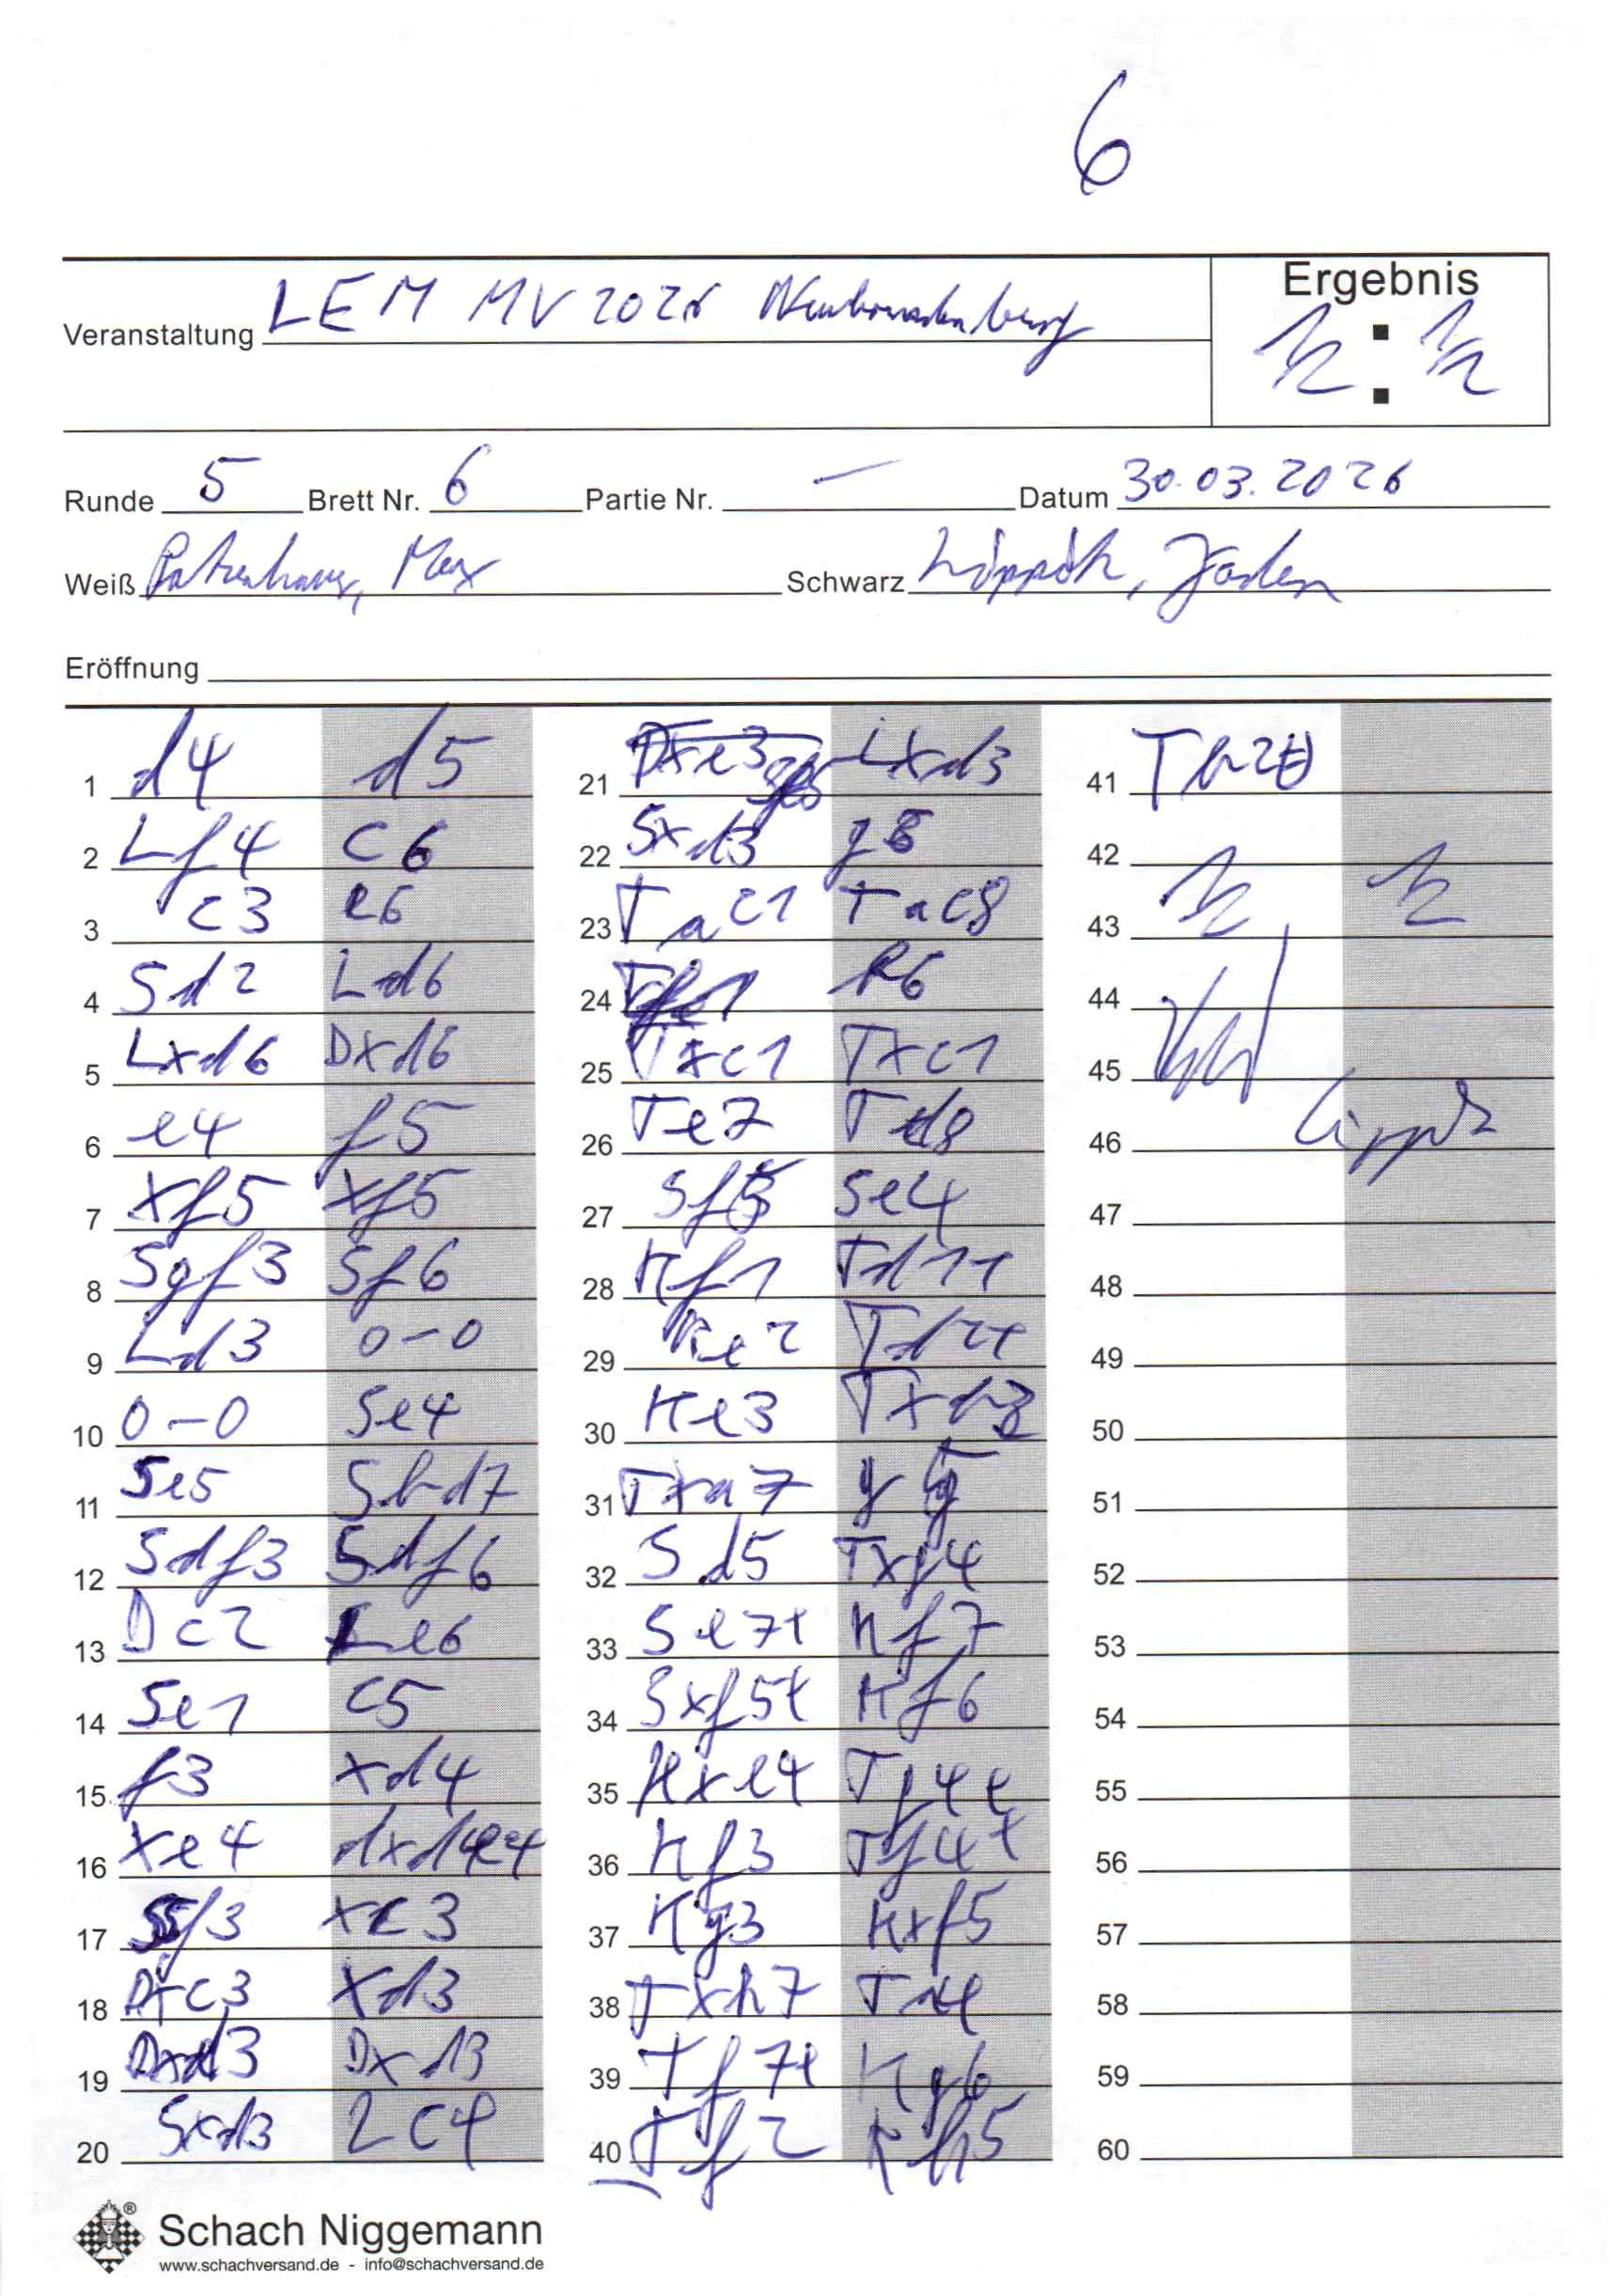 6
Ergebnis
½ : ½
Veranstaltung LEM MV 2026 Neubrandenburg
Runde 5 Brett Nr. 6 Partie Nr. — Datum 30.03.2026
Weiß Max Schwarz
Eröffnung
1 d4 d5
2 Lf4 c6
3 c3 e6
4 Sd2 Ld6
5 Lxd6 Dxd6
6 e4 f5
7 xf5 xf5
8 Sgf3 Sf6
9 Ld3 0-0
10 0-0 Se4
11 Se5 Sbd7
12 Sdf3 Sdf6
13 Dc2 Le6
14 Se1 c5
15 f3 xd4
16 xe4
17 Sf3 xc3
18 Dxc3 xd3
19 Dxd3 Dxd3
20 Sxd3 Lc4
21 Lxd3
22 Sxd3 g6
23 Tac1 Tac8
24 b6
25 Txc1 Txc1
26 Te7 Td8
27 Se4
28 Kf1 Td1+
29 Ke2 Td2+
30 Ke3
31 Txa7 g5
32 Sd5 Txg4
33 Se7+ Kf7
34 Sxf5+ Kf6
35 Kxe4 Tg4+
36 Kf3 Tf4+
37 Kg3 Kxf5
38 Txh7
39 Tf7+ Kg6
40 Tf2 Kh5
41
42
43 ½ ½
44
45
46
47
48
49
50
51
52
53
54
55
56
57
58
59
60
®
Schach Niggemann
www.schachversand.de - info@schachversand.de